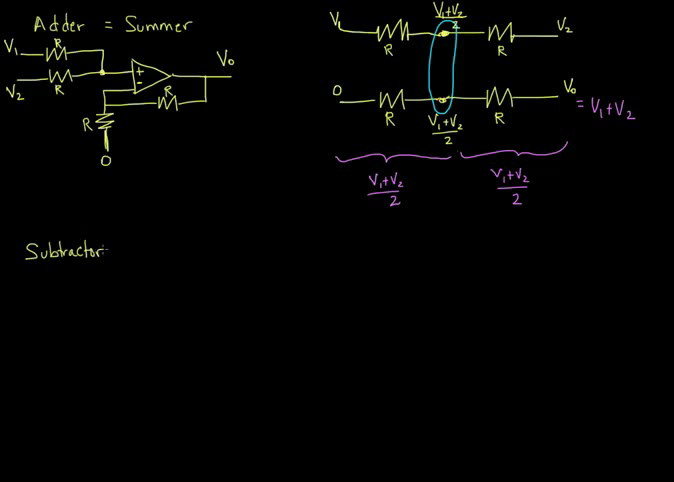 Adder = Summer
V₁
R
V₂
R
+
-
R
V₀
R
0
V₁
R
V₁+V₂
2
R
V₂
0
R
V₁+V₂
2
R
V₀
= V₁+V₂
V₁+V₂
2
V₁+V₂
2
Subtractor: